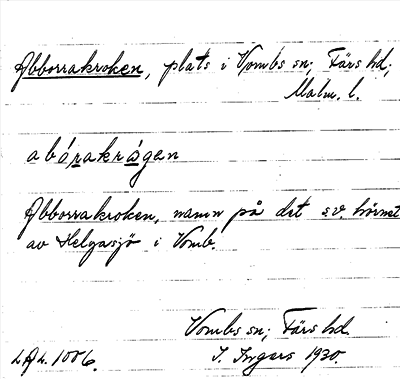 Abborrakroken, plats i Vombs sn; Färs hd;
Malm. l.
abárakrágen
Abborrakroken, namn på det s.v. hörnet
av Helgasjö i Vomb.
Vombs sn; Färs hd.
LAL. 1006. I. Ingers 1930